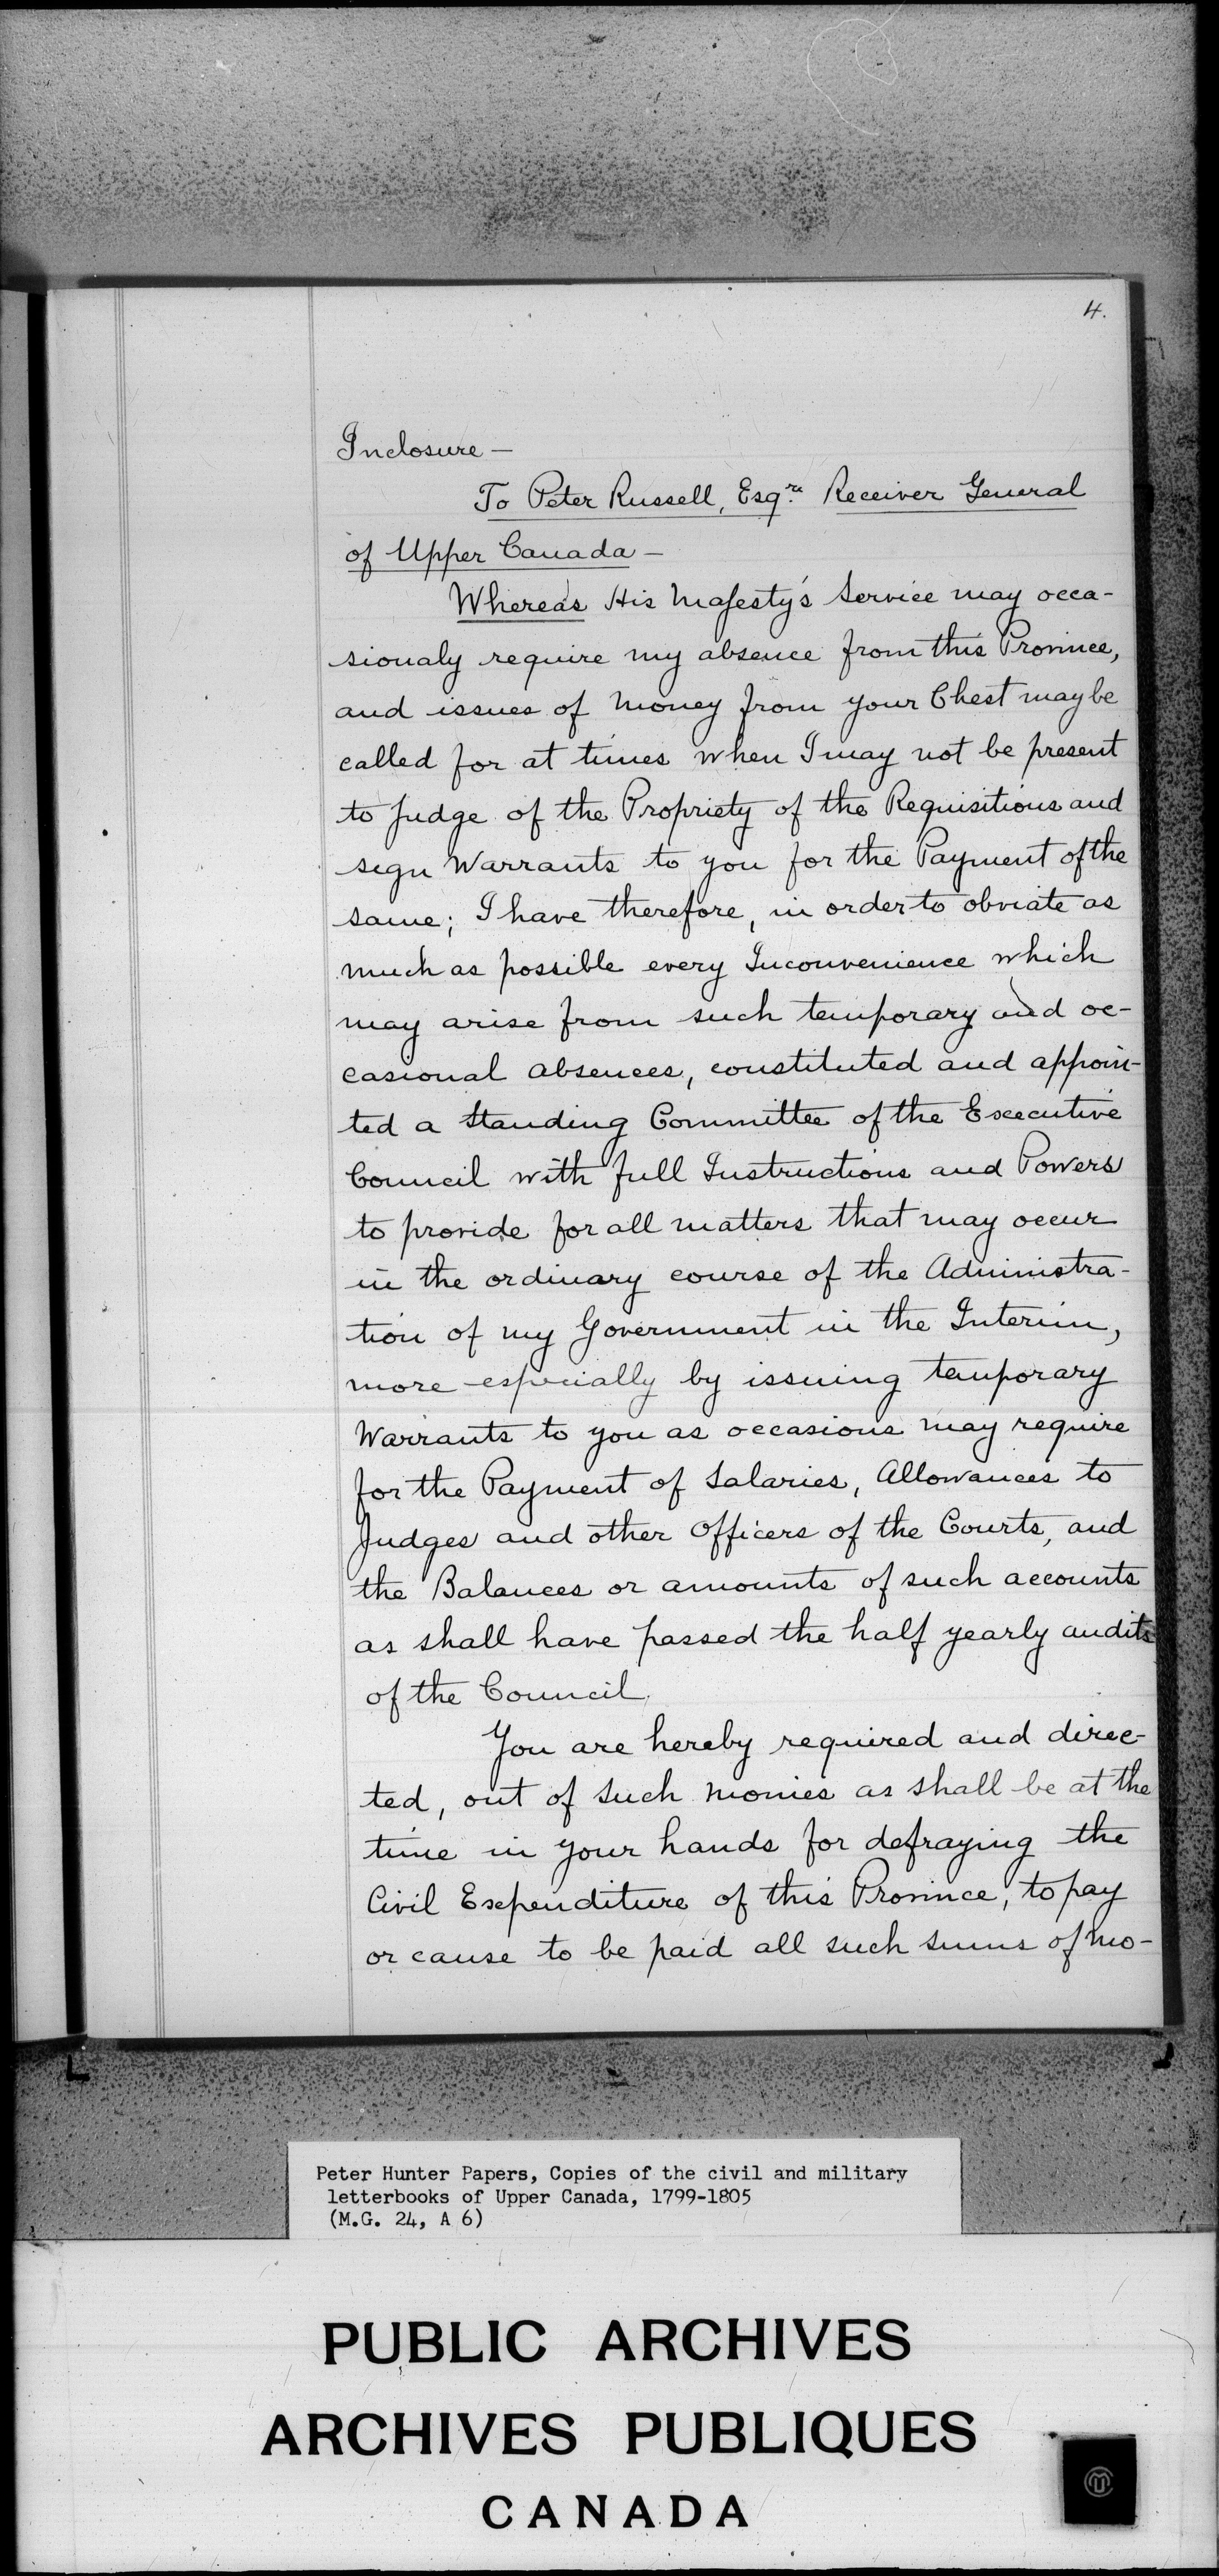 4.
Inclosure —
To Peter Russell, Esqre. Receiver General
of Upper Canada —
Whereas His Majesty's Service may occa-
sionaly require my absence from this Province,
and issues of Money from your Chest may be
called for at times when I may not be present
to judge of the Propriety of the Requisitions and
sign Warrants to you for the Payment of the
same; I have therefore, in order to obviate as
much as possible every Inconvenience which
may arise from such temporary and oc-
casional absences, constituted and appoin-
ted a Standing Committee of the Executive
Council with full Instructions and Powers
to provide for all matters that may occur
in the ordinary course of the Administra-
tion of my Government in the Interim,
more especially by issuing temporary
Warrants to you as occasions may require
for the Payment of Salaries, Allowances to
Judges and other Officers of the Courts, and
the Balances or amounts of such accounts
as shall have passed the half yearly audits
of the Council.
You are hereby required and direc-
ted, out of such monies as shall be at the
time in your hands for defraying the
Civil Expenditure of this Province, to pay
or cause to be paid all such sums of mo-
Peter Hunter Papers, Copies of the civil and military
letterbooks of Upper Canada, 1799-1805
(M.G. 24, A 6)
PUBLIC ARCHIVES
ARCHIVES PUBLIQUES
CANADA